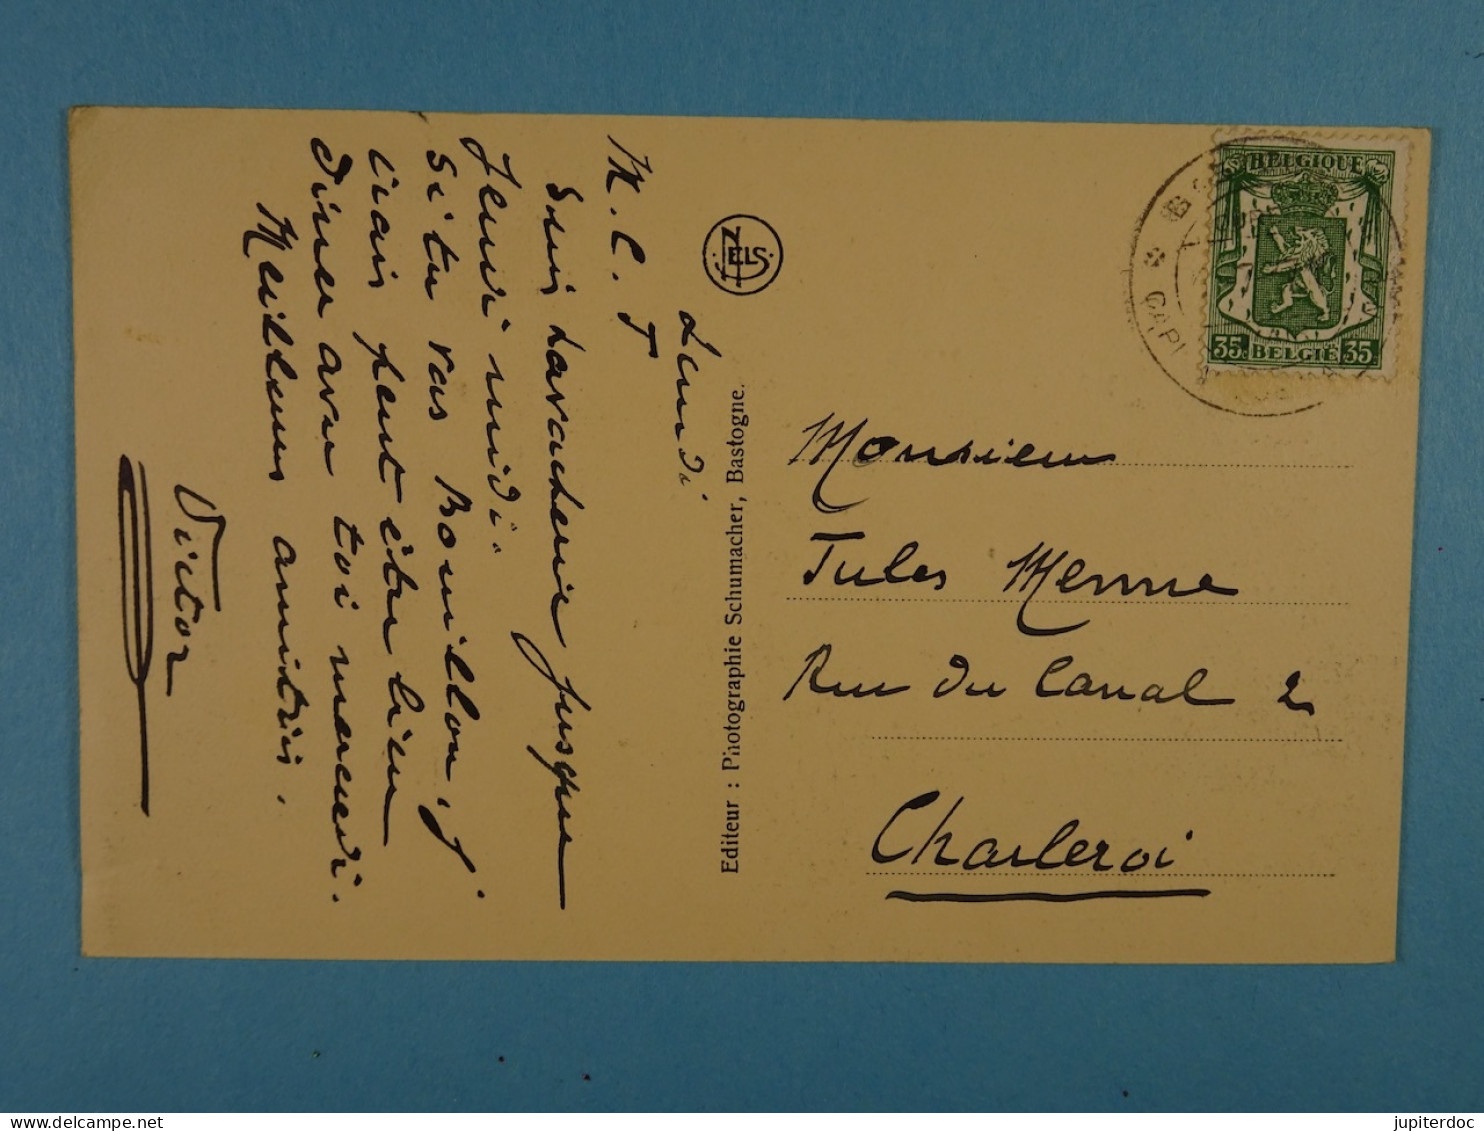 Lundi
M. C. J
Suis Lavacherie jusque
Jeudi midi.
Si tu vas Bouillon, j'
irais peut être bien
diner avec toi mercredi.
Meilleures amitiés.
Victor
NELS
Editeur : Photographie Schumacher, Bastogne.
BELGIQUE
35c BELGIË 35c
Monsieur
Jules Menne
Rue du Canal 2
Charleroi
jupiterdoc